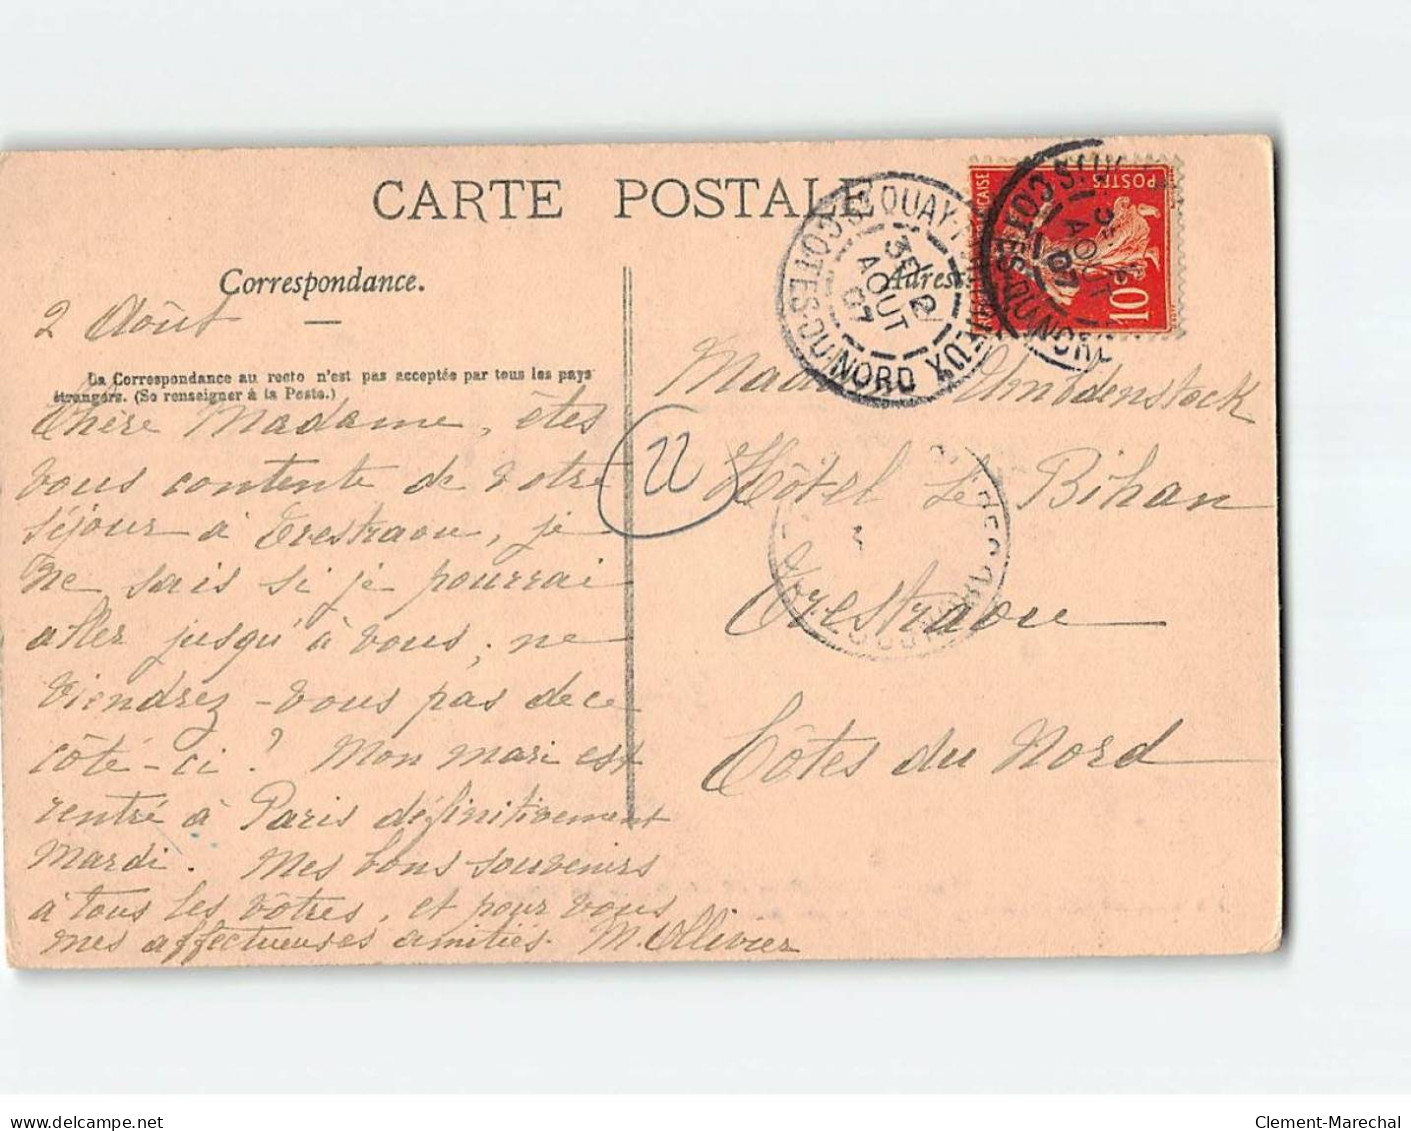 CARTE POSTALE
Correspondance.
Adresse
2 Août
La Correspondance au recto n'est pas acceptée par tous les pays
étrangers. (Se renseigner à la Poste.)
Chère Madame, êtes
vous contente de votre
séjour à Trestraou, je
ne sais si je pourrai
aller jusqu'à vous; ne
viendrez-vous pas de ce
côté-ci? Mon mari est
rentré à Paris définitivement
mardi. Mes bons souvenirs
à tous les vôtres, et pour vous
mes affectueuses amitiés. M. Ollivier
Umbdenstock
Hôtel Le Bihan
Trestraou
Côtes du Nord
22
ST QUAY-
COTES-DU-NORD
3E 2
AOUT
07
POSTES
10c
COTES-DU-NORD
3E
AOUT
07
Clement-Marechal